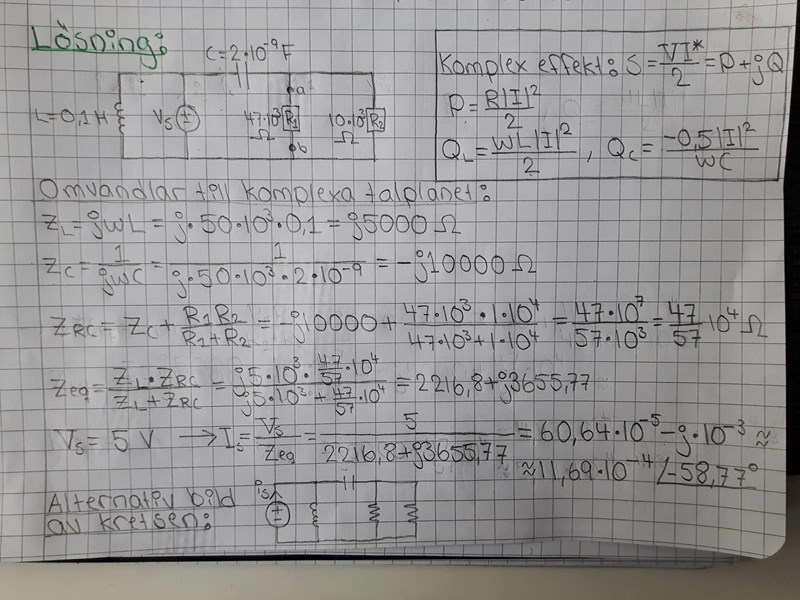 Lösning:
C=2·10⁻⁹F
L=0,1H
Vs
±
47·10³
Ω
R₁
a
b
10·10³
Ω
R₂
Komplex effekt: S = VI*/2 = P+jQ
P = R|I|²/2
Q_L = WL|I|²/2 , Q_C = -0,5|I|²/WC
Omvandlar till komplexa talplanet:
Z_L = jWL = j·50·10³·0,1 = j5000Ω
Z_C = 1/jWC = 1/j·50·10³·2·10⁻⁹ = -j10000Ω
Z_RC = Z_C + R₁R₂/R₁+R₂ = -j10000 + 47·10³·1·10⁴/47·10³+1·10⁴ = 47·10⁷/57·10³ = 47/57 10⁴Ω
Zeq = Z_L·Z_RC/Z_L+Z_RC = j5·10³·47/57·10⁴/j5·10³+47/57·10⁴ = 2216,8+j3655,77
Vs = 5 V → Is = Vs/Zeq = 5/2216,8+j3655,77 = 60,64·10⁻⁵-j·10⁻³ ≈
≈ 11,69·10⁻⁴ ∠-58,77°
Alternativ bild
av kretsen:
is
±